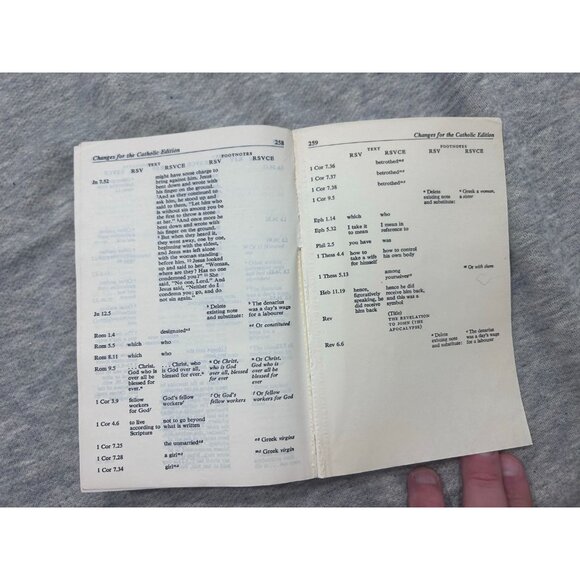 Changes for the Catholic Edition 258
TEXT FOOTNOTES
RSV RSVCE RSV RSVCE
Jn 7.52
might have some charge to
bring against him. Jesus
bent down and wrote with
his finger on the ground.
⁷ And as they continued to
ask him, he stood up and
said to them, "Let him who
is without sin among you be
the first to throw a stone
at her." ⁸ And once more he
bent down and wrote with
his finger on the ground.
⁹ But when they heard it,
they went away, one by one,
beginning with the eldest,
and Jesus was left alone
with the woman standing
before him. ¹⁰ Jesus looked
up and said to her, "Woman,
where are they? Has no one
condemned you?" ¹¹ She
said, "No one, Lord." And
Jesus said, "Neither do I
condemn you; go, and do
not sin again."
Jn 12.5 Delete The denarius
existing note was a day's wage
and substitute: for a labourer
Rom 1.4 designated Or constituted
Rom 5.5 which who
Rom 8.11 which who
Rom 9.5 . . . Christ, . . . Christ, who Or Christ, Or Christ,
God who is is God over all, who is God who is
over all be blessed for ever. over all, blessed God over all
blessed for for ever be blessed
ever. for ever
1 Cor 3.9 fellow God's fellow Or God's Or fellow
workers workers fellow workers workers for God
for God
1 Cor 4.6 to live not to go beyond
according to what is written
Scripture
1 Cor 7.25 the unmarried Greek virgins
1 Cor 7.28 a girl Greek virgin
1 Cor 7.34 a girl
259 Changes for the Catholic Edition
TEXT FOOTNOTES
RSV RSVCE RSV RSVCE
1 Cor 7.36 betrothed
1 Cor 7.37 betrothed
1 Cor 7.38 betrothed
1 Cor 9.5 Delete Greek a woman,
existing note a sister
and substitute:
Eph 1.14 which who
Eph 5.32 I take it I mean in
to mean reference to
Phil 2.5 you have was
1 Thess 4.4 how to how to control
take a wife his own body
for himself
1 Thess 5.13 among Or with
yourselves
Heb 11.19 hence, hence he did
figuratively receive him back,
speaking, he and this was a
did receive symbol
him back
Rev (Title)
THE REVELATION
TO JOHN (THE
APOCALYPSE)
Rev 6.6 Delete The denarius
existing note was a day's wage
and substitute: for a labourer